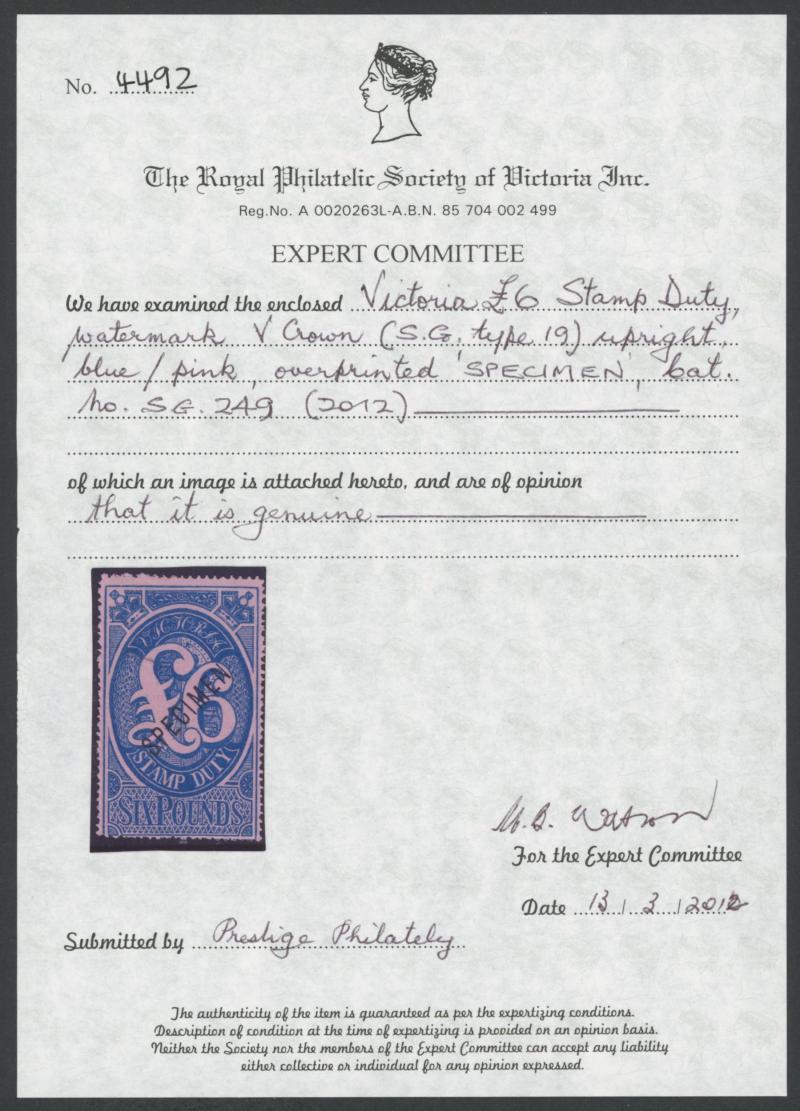 No. 4492
The Royal Philatelic Society of Victoria Inc.
Reg.No. A 0020263L-A.B.N. 85 704 002 499
EXPERT COMMITTEE
We have examined the enclosed Victoria £6 Stamp Duty,
watermark V Crown (S.G. type 19) upright,
blue / pink, overprinted 'SPECIMEN', cat.
no. SG. 249 (2012)
of which an image is attached hereto, and are of opinion
that it is genuine
VICTORIA
£6
SPECIMEN
STAMP DUTY
SIX POUNDS
Watson
For the Expert Committee
Date 13 / 3 / 2012
Submitted by Prestige Philately
The authenticity of the item is guaranteed as per the expertizing conditions.
Description of condition at the time of expertizing is provided on an opinion basis.
Neither the Society nor the members of the Expert Committee can accept any liability
either collective or individual for any opinion expressed.